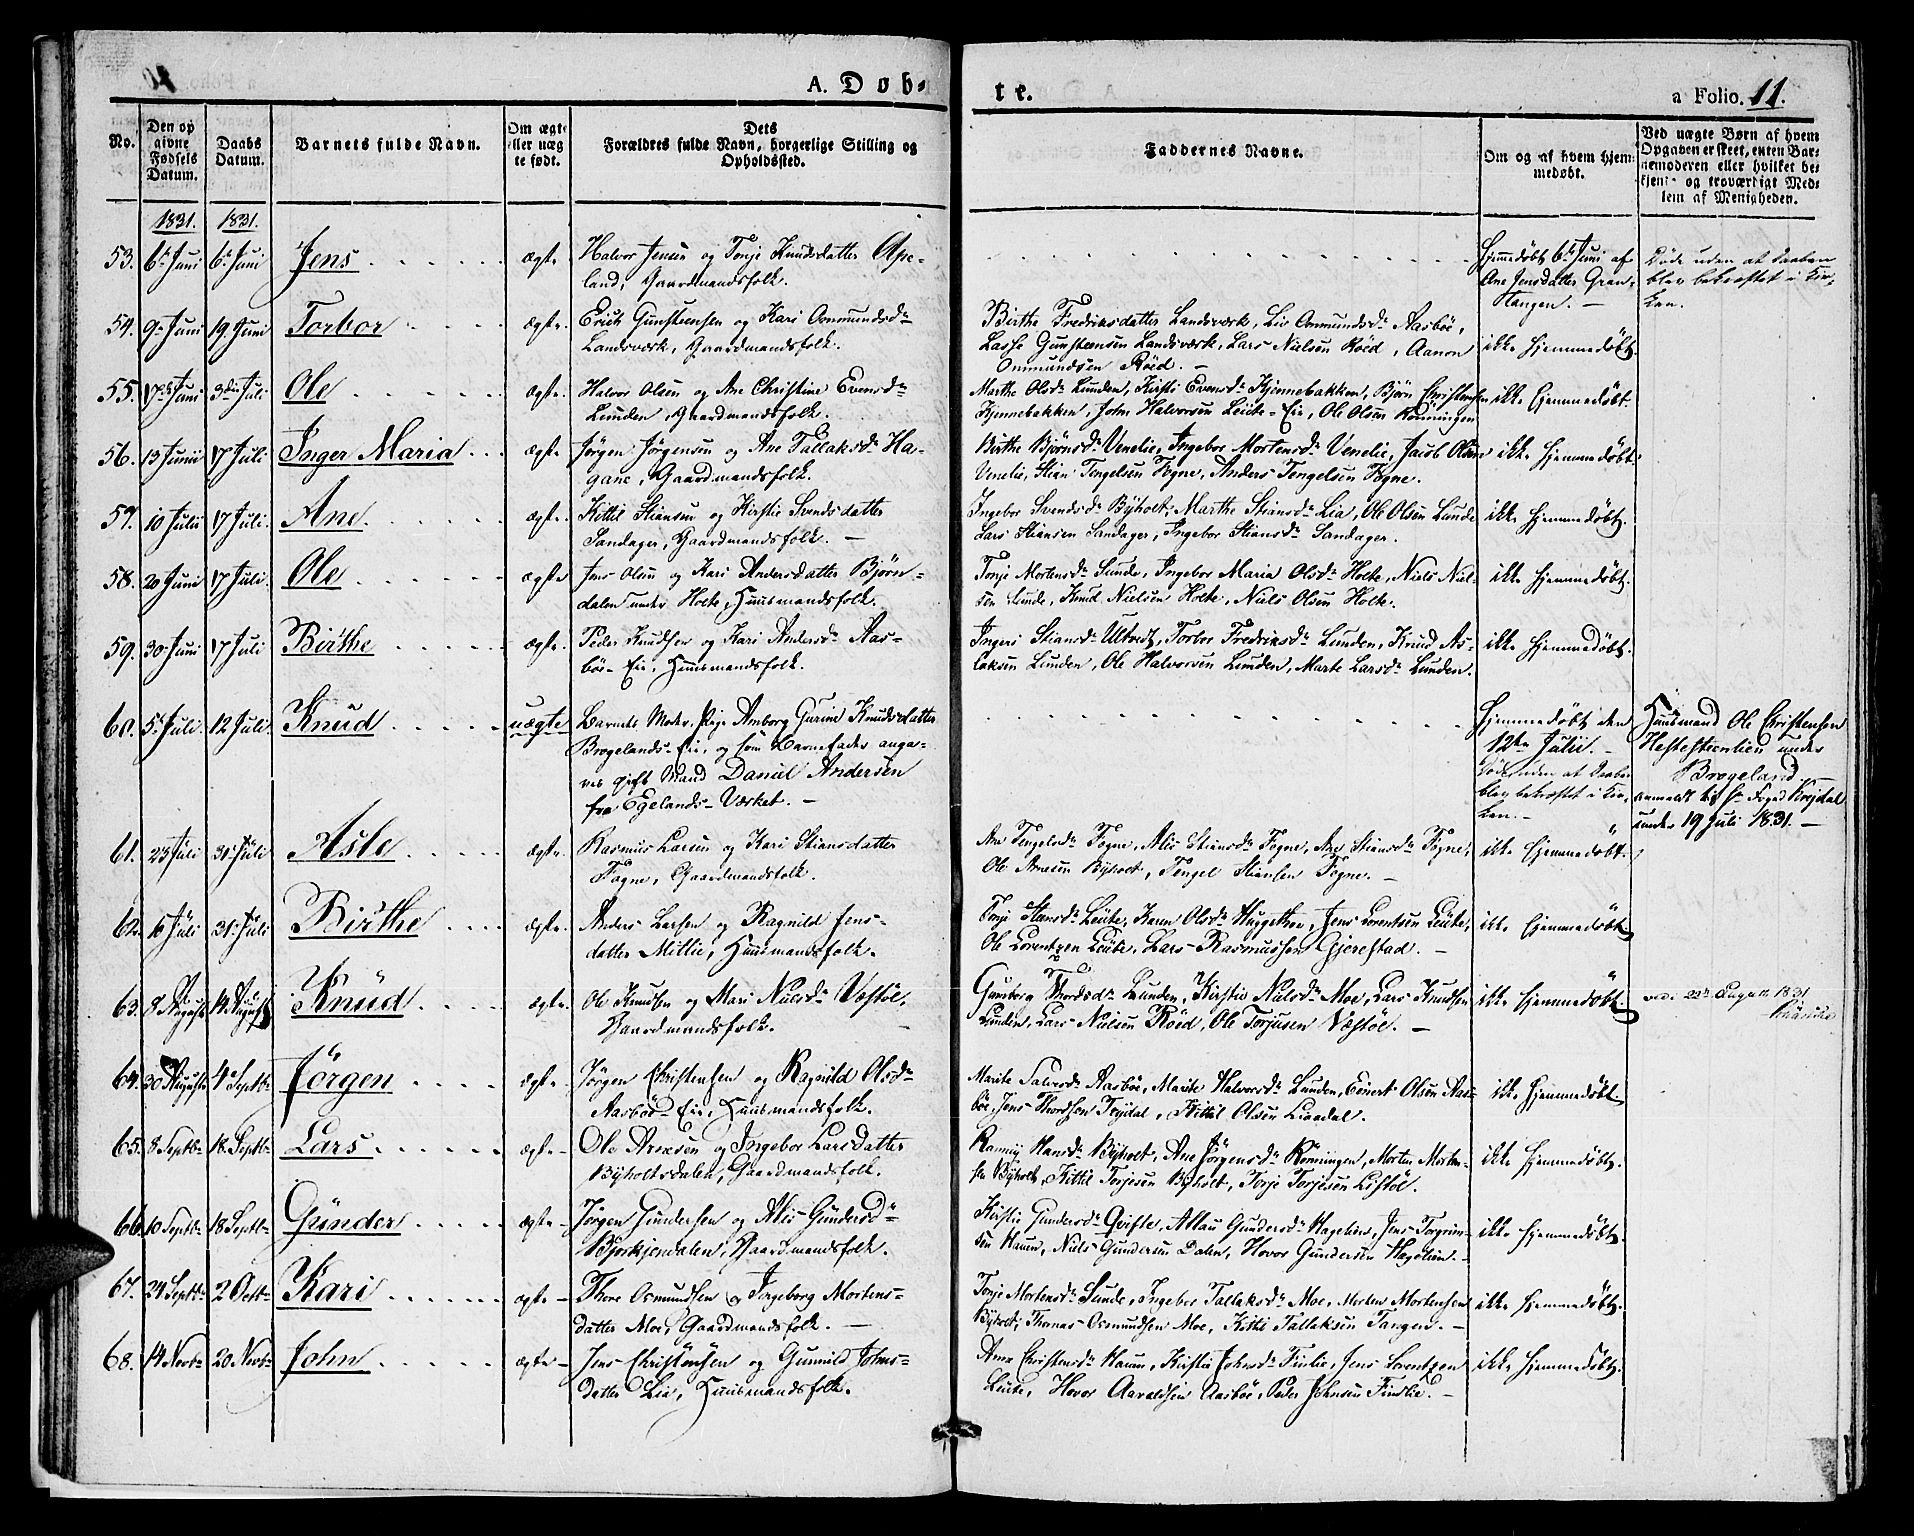 A. Døbte. a Folio. 11.
No. | Den opgivne Fødsels Datum. | Daabs Datum. | Barnets fulde Navn. | Om ægte eller uægte født. | Dets Forældres fulde Navn, borgerlige Stilling og Opholdssted. | Faddernes Navne. | Om og af hvem hjemmedøbt. | Ved uægte Børn af hvem Opgaven er skeet, enten Barnemoderen eller hvilket bekjent og troværdigt Medlem af Menigheden.
1831. 1831.
53. 6te Juni 6te Juni Jens ægte. Halvor Jensen og Tonje Knudsdatter Ape-
land, Gaardmandsfolk.
Hjemmedøbt 6te Juni af
Ane Jensdatter Gran-
Tangen. —
Døde uden at Daaben
blev bekræftet i Kir-
ken.
54. 9de Juni 19 Juni Torbor ægte. Erich Gunsteensen og Kari Ommundsdr
Landsværk, Gaardmandsfolk.
Birthe Fredriksdatter Landsværk, Liv Ommundsdr Aasbøe,
Lasse Gunsteensen Landsværk, Lars Nielsen Røed, Aanon
Ommundsen Røed. —
ikke hjemmedøbt.
55. 17de Juni 3die Juli Ole ægte. Halvor Olsen og Ane Christine Evensdr
Lunden, Gaardmandsfolk.
Marthe Olsdr Lunden, Kirsti Evensdr Kjennebakken, Bjørn Christensen
Kjennebakken, John Halvorsen Leute-Eie, Ole Olsen Rønningen
ikke hjemmedøbt.
56. 13 Junii 17 Juli Inger Maria ægte. Jørgen Jørgensen og Ane Tallaksdr Ha-
gane, Gaardmandsfolk.
Birthe Bjørnsdr Venelie, Ingebor Mortensdr Venelie, Jacob Olsen
Venelie, Stian Tengelsen Fogne, Anders Tengelsen Fogne.
ikke hjemmedøbt.
57. 10 Julii 17 Juli. Ane ægte. Kittil Stiansen og Kirstie Svendsdatter
Sandager, Gaardmandsfolk. —
Ingebor Svendsdr Byholt, Marthe Stiansdr Lia, Ole Olsen Lunde
Lars Stiansen Sandager, Ingebor Stiansdr Sandager.
ikke hjemmedøbt.
58. 20 Juni 17 Juli. Ole ægte Jens Olsen og Kari Andersdatter Bjørn-
dalen under Holte, Huusmandsfolk.
Tonje Mortensdr Sunde, Ingebor Maria Olsdr Holte, Niels Niel-
sen Sunde, Knud Nielsen Holte, Niels Olsen Holte.
ikke hjemmedøbt.
59. 30 Juni 17 Juli Birthe ægte. Peder Knudsen og Kari Andersdr Aas-
bøe-Eie, Huusmandsfolk.
Ingeri Stiansdr Ultvedt, Torbor Fredriksdr Lunden, Knud As-
laksen Lunden, Ole Halvorsen Lunden, Marte Larsdr Lunden.
ikke hjemmedøbt.
60. 5te Juli. 12 Juli. Knud uægte Barnets Moder Pige Amborg Gurine Knudsdatter
Brøgelands-Eie, og som Barnefader anga-
ves gift Mand Daniel Andersen
fra Egelands-Værket. —
Hjemmedøbt den
12te Julii. —
Døde uden at Daaben
blev bekræftet i Kir-
ken. —
Huusmand Ole Christensen
under
Brøgeland.
anmeldt til Hr Foged
under 19 Juli 1831. —
61. 23 Juli 31 Juli Asle ægte. Rasmus Larsen og Kari Stiansdatter
Fogne, Gaardmandsfolk.
Ane Tengelsdr Fogne, Alis Stiansdr Fogne, Ane Stiansdr Fogne,
Ole Arnesen Byholt, Tengel Stiansen Fogne. —
ikke hjemmedøbt.
62. 16 Juli 31 Juli Birthe ægte. Anders Larsen og Ragnild Jens-
datter Millie, Huusmandsfolk.
Tonje Leute, Karen Olsdr Jens Lorentsen Leute,
Ole Lorentzen Leute, Lars Rasmussen Gjerestad. —
ikke hjemmedøbt.
63. 8 August 14 August Knud ægte. Ole Knudsen og Mari Nielsdr Væstøl,
Gaardmandsfolk.
Gunborg Thordsdr Lunden, Kirstie Nielsdr Moe, Lars Knudsen
Lunden, Lars Nielsen Røed, Ole Torjusen Væstøl. —
ikke hjemmedøbt.
August 1831
64. 30 August 4 Septbr Jørgen ægte. Jørgen Christensen og Ragnild Olsdr
Aasbøe-Eie, Huusmandsfolk.
Marite Salvesdr Aasbøe, Marite Halvorsdr Lunden, Einert Olsen Aas-
bøe, Jens Thordsen Trydal, Kittil Olsen Livedal.
ikke hjemmedøbt.
65. 8 Septbr 18 Septbr Lars ægte. Ole Arnesen og Ingebor Larsdatter
Byholtsdalen, Gaardmandsfolk.
Hansdr Byholt, Ane Jørgensdr Rønningen, Morten Morten-
sen Byholt, Kittil Torjesen Byholt, Torje Torjesen Listøl.
ikke hjemmedøbt.
66. 10 Septbr 18 Septbr Gunder ægte. Jørgen Gundersen og Alis Gundersdr
Bjorkjendalen, Gaardmandsfolk.
Kirstie Gundersdr Qvifte, Gundersdr Jens Torgrim-
sen Hauen, Niels Gundersen Dalen, Hovor Gundersen —
ikke hjemmedøbt.
67. 24 Septbr 2 Octbr Kari ægte. Thore Osmundsen og Ingeborg Mortens-
datter Moe, Gaardmandsfolk. —
Tonje Mortensdr Sunde, Ingebor Tallaksdr Moe, Morten Mortensen
Byholt, Thomas Osmundsen Moe, Kittil Tallaksen Tangen. —
ikke hjemmedøbt.
68. 14 Novbr 20 Novbr John ægte. Jens Christensen og Gunnild Johns-
datter Lia, Huusmandsfolk.
Anne Christensdr Hauen, Kirstie Johnsdr Finlie, Jens Lorentzen
Leute, Hovor Aavoldsen Aasbøe, Peder Johnsen Finlie. —
ikke hjemmedøbt.